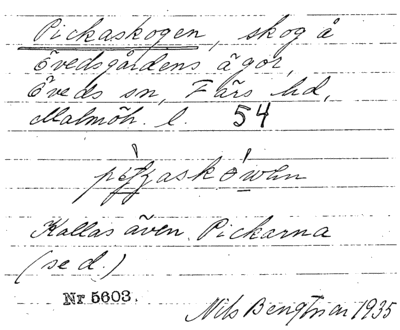 Pickaskogen, skog å
Övedsgårdens ägor,
Öveds sn, Färs hd,
Malmöh. l. 54
Kallas även Pickarna
(se d.)
Nr 5603.
Nils Bengtsson 1935